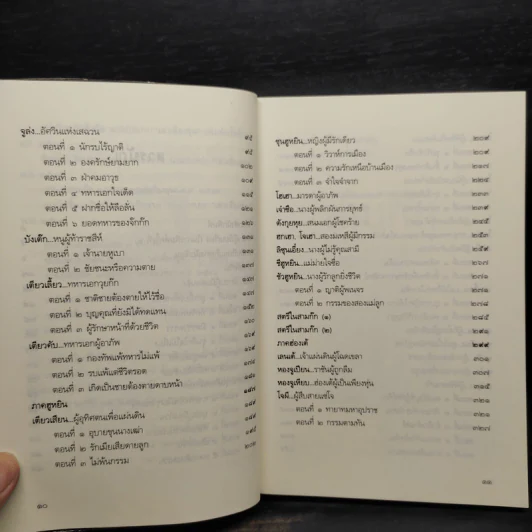 จูล่ง...อัศวินแห่งเสฉวน ๙๕
ตอนที่ ๑ นักรบไร้ญาติ ๙๕
ตอนที่ ๒ องครักษ์ยามยาก ๑๐๒
ตอนที่ ๓ ฝ่าคมอาวุธ ๑๐๙
ตอนที่ ๔ ทหารเอกใจเด็ด ๑๑๕
ตอนที่ ๕ ฝากชื่อให้ลือลั่น ๑๒๑
ตอนที่ ๖ ยอดทหารของจ๊กก๊ก ๑๒๖
บังเต๊ก...หนูผู้ท้าราชสีห์ ๑๓๑
ตอนที่ ๑ เจ้านายหูเบา ๑๓๑
ตอนที่ ๒ ชัยชนะหรือความตาย
เตียวเลี้ยว...ทหารเอกวุยก๊ก
ตอนที่ ๑ ชาติชายต้องตายให้ไว้ชื่อ
ตอนที่ ๒ บุญคุณที่ยังมิได้ทดแทน ๑๕๒
ตอนที่ ๓ ผู้รักษาหน้าที่ด้วยชีวิต
เตียวคับ...ทหารเอกผู้อาภัพ ๑๖๙
ตอนที่ ๑ กองทัพแพ้ทหารไม่แพ้ ๑๖๙
ตอนที่ ๒ รบแพ้แต่ชีวิตรอด
ตอนที่ ๓ เกิดเป็นชายต้องตายดาบหน้า
ภาคฮูหยิน ๑๘๗
เตียวเสี้ยน...ผู้อุทิศตนเพื่อแผ่นดิน
ตอนที่ ๑ อุบายขุนนางเฒ่า
ตอนที่ ๒ รักเมียเสียดายลูก
ตอนที่ ๓ ไม่พ้นกรรม
๑๐
ซุนฮูหยิน...หญิงผู้มีรักเดียว ๒๐๙
ตอนที่ ๑ วิวาห์การเมือง ๒๐๙
ตอนที่ ๒ ความรักเหนือบ้านเมือง ๒๑๗
ตอนที่ ๓ จำใจจำจาก
โฮเฮา...มารดาผู้อาภัพ ๒๓๓
เจ๋าซือ...นางผู้พลิกผันการยุทธ์
ตังกุยหุย...สนมเอกผู้โชคร้าย ๒๔๕
ฮกเฮา, โจเฮา...สองมเหสีผู้มีกรรม
ลิซุนเอี๋ยง...นางผู้ไม่รู้คุณสามี ๒๕๙
ชีฮูหยิน...แม่ม่ายใจซื่อ
ชัวฮูหยิน...นางผู้รักลูกยิ่งชีวิต ๒๗๑
ตอนที่ ๑ ญาติผู้พเนจร ๒๗๑
ตอนที่ ๒ กรรมของสองแม่ลูก ๒๗๘
สตรีในสามก๊ก (๑) ๒๘๕
สตรีในสามก๊ก (๒) ๒๙๑
ภาคฮ่องเต้ ๒๙๙
เลนเต้...เจ้าแผ่นดินผู้โฉดเขลา ๓๐๑
หองจูเปียน...ราชันผู้ถูกลืม ๓๐๗
หองจูเหียบ...ฮ่องเต้ผู้เป็นเพียงหุ่น ๓๑๕
โจผี...ผู้สืบสายแซ่โจ ๓๒๑
ตอนที่ ๑ ทายาทมหาอุปราช ๓๒๑
ตอนที่ ๒ กรรมตามทัน ๓๒๗
๑๑